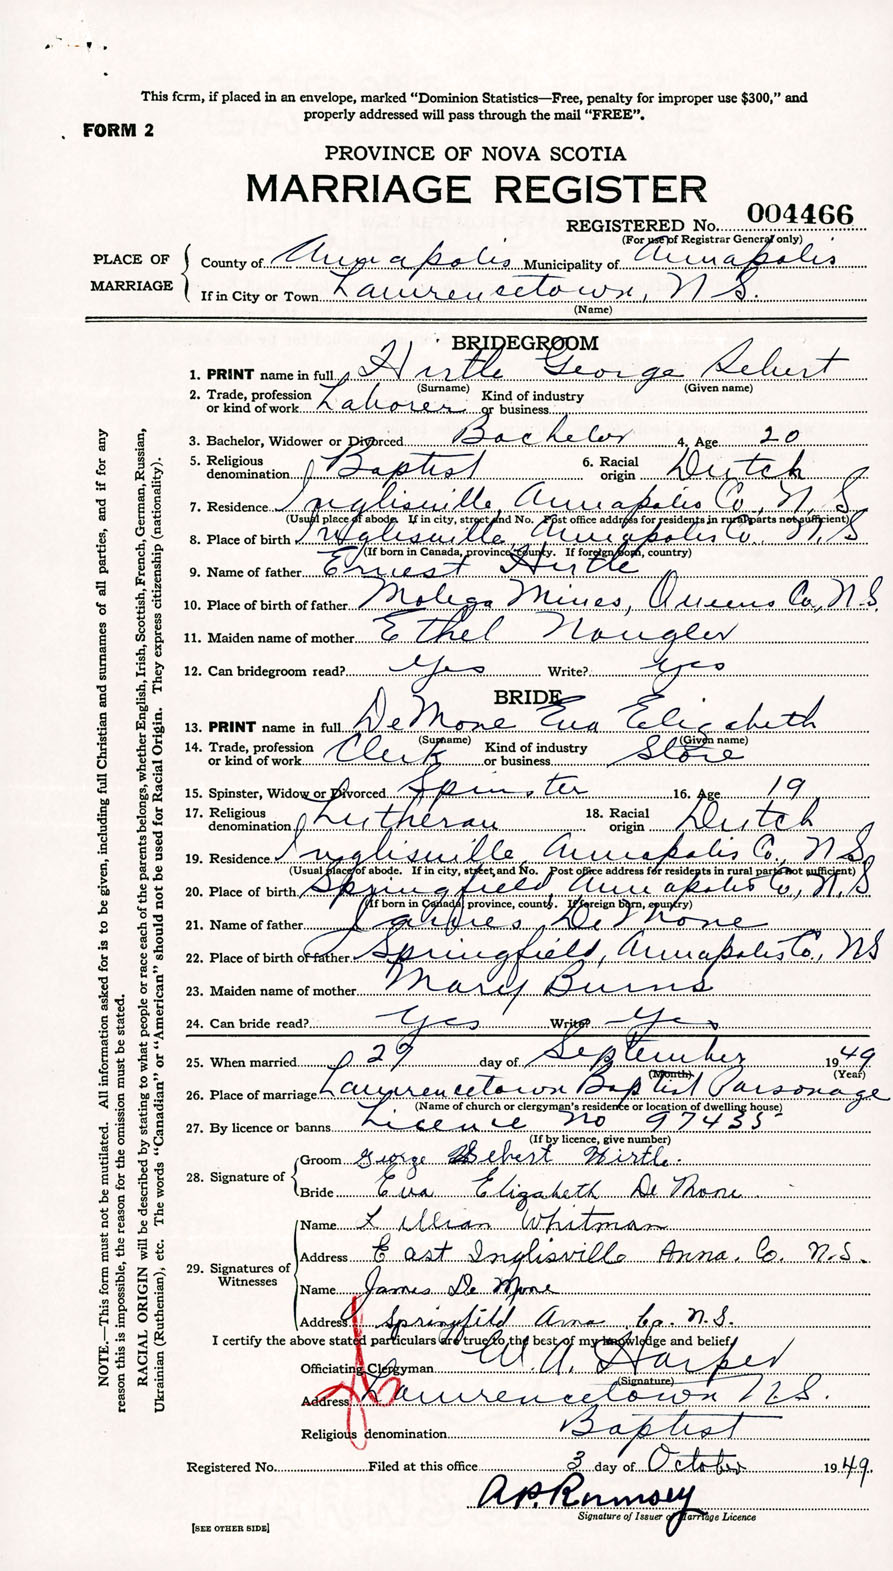 This form, if placed in an envelope, marked “Dominion Statistics—Free, penalty for improper use $300,” and
properly addressed will pass through the mail “FREE”.
FORM 2
PROVINCE OF NOVA SCOTIA
MARRIAGE REGISTER
REGISTERED No. 004466
(For use of Registrar General only)
PLACE OF MARRIAGE
County of Annapolis Municipality of Annapolis
If in City or Town Lawrencetown, N.S.
(Name)
BRIDEGROOM
1. PRINT name in full Hirtle George Sebert
(Surname) (Given name)
2. Trade, profession or kind of work Laborer Kind of industry or business
3. Bachelor, Widower or Divorced Bachelor 4. Age 20
5. Religious denomination Baptist 6. Racial origin Dutch
7. Residence Inglisville, Annapolis Co., N.S
(Usual place of abode. If in city, street and No. Post office address for residents in rural parts not sufficient)
8. Place of birth Inglisville, Annapolis Co. N.S
(If born in Canada, province, county. If foreign born, country)
9. Name of father Ernest Hirtle
10. Place of birth of father Molega Mines, Queens Co., N.S.
11. Maiden name of mother Ethel Naugler
12. Can bridegroom read? Yes Write? Yes
BRIDE
13. PRINT name in full DeMone Eva Elizabeth
(Surname) (Given name)
14. Trade, profession or kind of work Clerk Kind of industry or business Store
15. Spinster, Widow or Divorced Spinster 16. Age 19
17. Religious denomination Lutheran 18. Racial origin Dutch
19. Residence Inglisville, Annapolis Co., N.S.
(Usual place of abode. If in city, street and No. Post office address for residents in rural parts not sufficient)
20. Place of birth Springfield, Annapolis Co, N.S
(If born in Canada, province, county. If foreign born, country)
21. Name of father James DeMone
22. Place of birth of father Springfield, Annapolis Co., NS
23. Maiden name of mother Mary Burns
24. Can bride read? Yes Write? Yes
25. When married 29 day of September 1949
(Month) (Year)
26. Place of marriage Lawrencetown Baptist Parsonage
(Name of church or clergyman's residence or location of dwelling house)
27. By licence or banns Licence No 97435
(If by licence, give number)
28. Signature of
Groom George Sebert Hirtle.
Bride Eva Elizabeth De Mone
29. Signatures of Witnesses
Name Lillian Whitman
Address East Inglisville Anna. Co. N.S.
Name James De Mone
Address Springfild Anna Co. N.S.
I certify the above stated particulars are true to the best of my knowledge and belief
Officiating Clergyman W. A. Harper
(Signature)
Address Lawrencetown N.S.
Religious denomination Baptist
Registered No. Filed at this office 3 day of October 1949.
Signature of Issuer of Marriage Licence
[SEE OTHER SIDE]
NOTE.—This form must not be mutilated. All information asked for is to be given, including full Christian and surnames of all parties, and if for any
reason this is impossible, the reason for the omission must be stated.
RACIAL ORIGIN will be described by stating to what people or race each of the parents belongs, whether English, Irish, Scottish, French, German, Russian,
Ukrainian (Ruthenian), etc. The words “Canadian” or “American” should not be used for Racial Origin. They express citizenship (nationality).